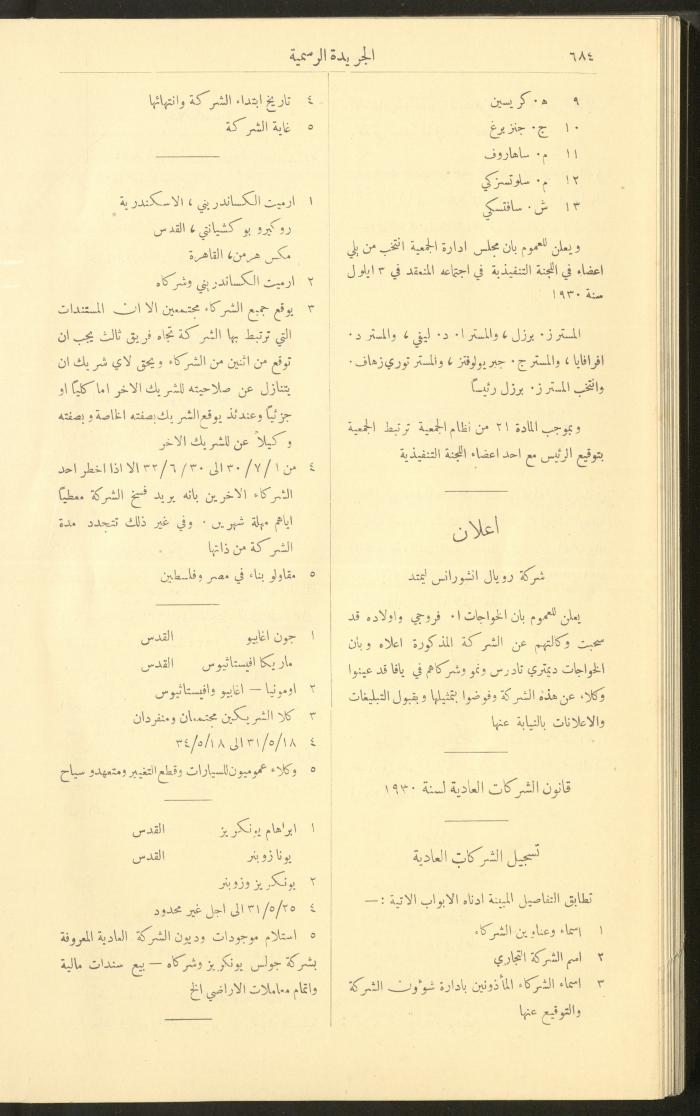 ٦٨٤
الجريدة الرسمية
٩ ه. كريسين
١٠ ج. جنزبرغ
١١ م. ساهاروف
١٢ م. سلوتسزكي
١٣ ش. سافتسكي
ويعلن للعموم بان مجلس ادارة الجمعية انتخب من يلي
اعضاء في اللجنة التنفيذية في اجتماعه المنعقد في ٣ ايلول
سنة ١٩٣٠
المستر ز. برزل ، والمستر ا. د. ليفي ، والمستر د.
افرافايا ، والمستر ج. جبريولوفتز ، والمستر توري زهاف.
وانتخب المستر ز. برزل رئيساً
وبموجب المادة ٢١ من نظام الجمعية ترتبط الجمعية
بتوقيع الرئيس مع احد اعضاء اللجنة التنفيذية
اعلان
شركة رويال انشورانس ليمتد
يعلن للعموم بان الخواجات ا. فروجي واولاده قد
سحبت وكالتهم عن الشركة المذكورة اعلاه وبان
الخواجات ديمتري تادرس ونمو وشركاهم في يافا قد عينوا
وكلاء عن هذه الشركة وفوضوا بتمثيلها وبقبول التبليغات
والاعلانات بالنيابة عنها
قانون الشركات العادية لسنة ١٩٣٠
تسجيل الشركات العادية
تطابق التفاصيل المبينة ادناه الابواب الاتية :—
١ اسماء وعناوين الشركاء
٢ اسم الشركة التجاري
٣ اسماء الشركاء المأذونين بادارة شؤون الشركة
والتوقيع عنها
٤ تاريخ ابتداء الشركة وانتهائها
٥ غاية الشركة
١ ارميت الكساندريني ، الاسكندرية
روكيرو بوكشياني ، القدس
مكس هرمن، القاهرة
٢ ارميت الكساندريني وشركاه
٣ يوقع جميع الشركاء مجتمعين الا ان المستندات
التي ترتبط بها الشركة تجاه فريق ثالث يجب ان
توقع من اثنين من الشركاء ويحق لاي شريك ان
يتنازل عن صلاحيته للشريك الاخر اما كلياً او
جزئياً وعندئذ يوقع الشريك بصفته الخاصة وبصفته
وكيلاً عن للشريك الاخر
٤ من ٣٠/٧/١ الى ٣٢/٦/٣٠ الا اذا اخطر احد
الشركاء الاخرين بانه يريد فسخ الشركة معطياً
اياهم مهلة شهرين. وفي غير ذلك تتجدد مدة
الشركة من ذاتها
٥ مقاولو بناء في مصر وفلسطين
١ جون اغابيو القدس
ماريكا افيستاثيوس القدس
٢ اومونيا — اغابيو وافيستاثيوس
٣ كلا الشريكين مجتمعان ومنفردان
٤ ٣١/٥/١٨ الى ٣٤/٥/١٨
٥ وكلاء عموميون للسيارات وقطع التغيير ومتعهدو سياح
١ ابراهام يونكريز القدس
يونا زوبنر القدس
٢ يونكريز وزوبنر
٤ ٣١/٥/٢٥ الى اجل غير محدود
٥ استلام موجودات وديون الشركة العادية المعروفة
بشركة جولس يونكريز وشركاه — بيع سندات مالية
واتمام معاملات الاراضي الخ